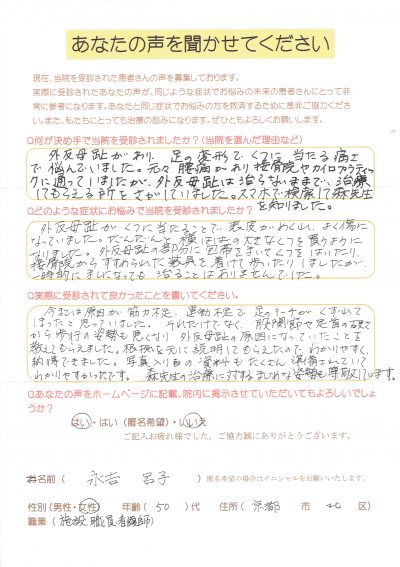 あなたの声を聞かせてください
現在、当院を受診された患者さんの声を募集しております。
実際に受診されたあなたの声が、同じような症状でお悩みの未来の患者さんにとって非
常に参考になります。あなたと同じ症状でお悩みの方を救済するために是非ご協力くださ
い。また、私たちにとっても治療の励みになります。ぜひともよろしくお願いします。
Q何が決め手で当院を受診されましたか?(当院を選んだ理由など)
外反母趾があり、足の変形でくつに当たる痛さ
で悩んでいました。元々腰痛があり接骨院やカイロプラティッ
クに通っていましたが、外反母趾は治らないままで、治療
してもらえる所をさがしていました。スマホで検索して森先生
を知りました。
Qどのような症状にお悩みで当院を受診されましたか?
外反母趾がくつに当たることで、皮がめくれ、よく傷に
なっていました。だんだんと横はばの大きなくつを買うように
なりました。外反母趾の部分に包帯をまいてくつをはいたり、
接骨院からすすめられた装具を着けて歩いたりしましたが、
一時的にましになっても治ることはありませんでした。
Q実際に受診されて良かったことを書いてください。
今までは原因が筋力不足、運動不足で足のアーチがくずれて
しまったと思っていました。それだけでなく、股関節や足首の硬さ
から歩行の姿勢も悪くなり外反母趾の原因になっていたことを
教えてもらえました。根拠を元に説明してもらえたのでわかりやすく
納得できました。写真入りの資料もたくさん準備されていて
わかりやすかったです。森先生の治療に対するまじめな姿勢も尊敬しています。
Qあなたの声をホームページに記載、院内に掲示させていただいてもよろしいでしょ
うか?
はい・はい(匿名希望)・いいえ
ご記入お疲れ様でした。ご協力誠にありがとうございます。
お名前( 永吉 呂子 )匿名希望の場合はイニシャルをお願いいたします。
性別(男性・女性) 年齢( 50 )代 住所( 京都 市 北 区)
職業( 施設職員看護師)